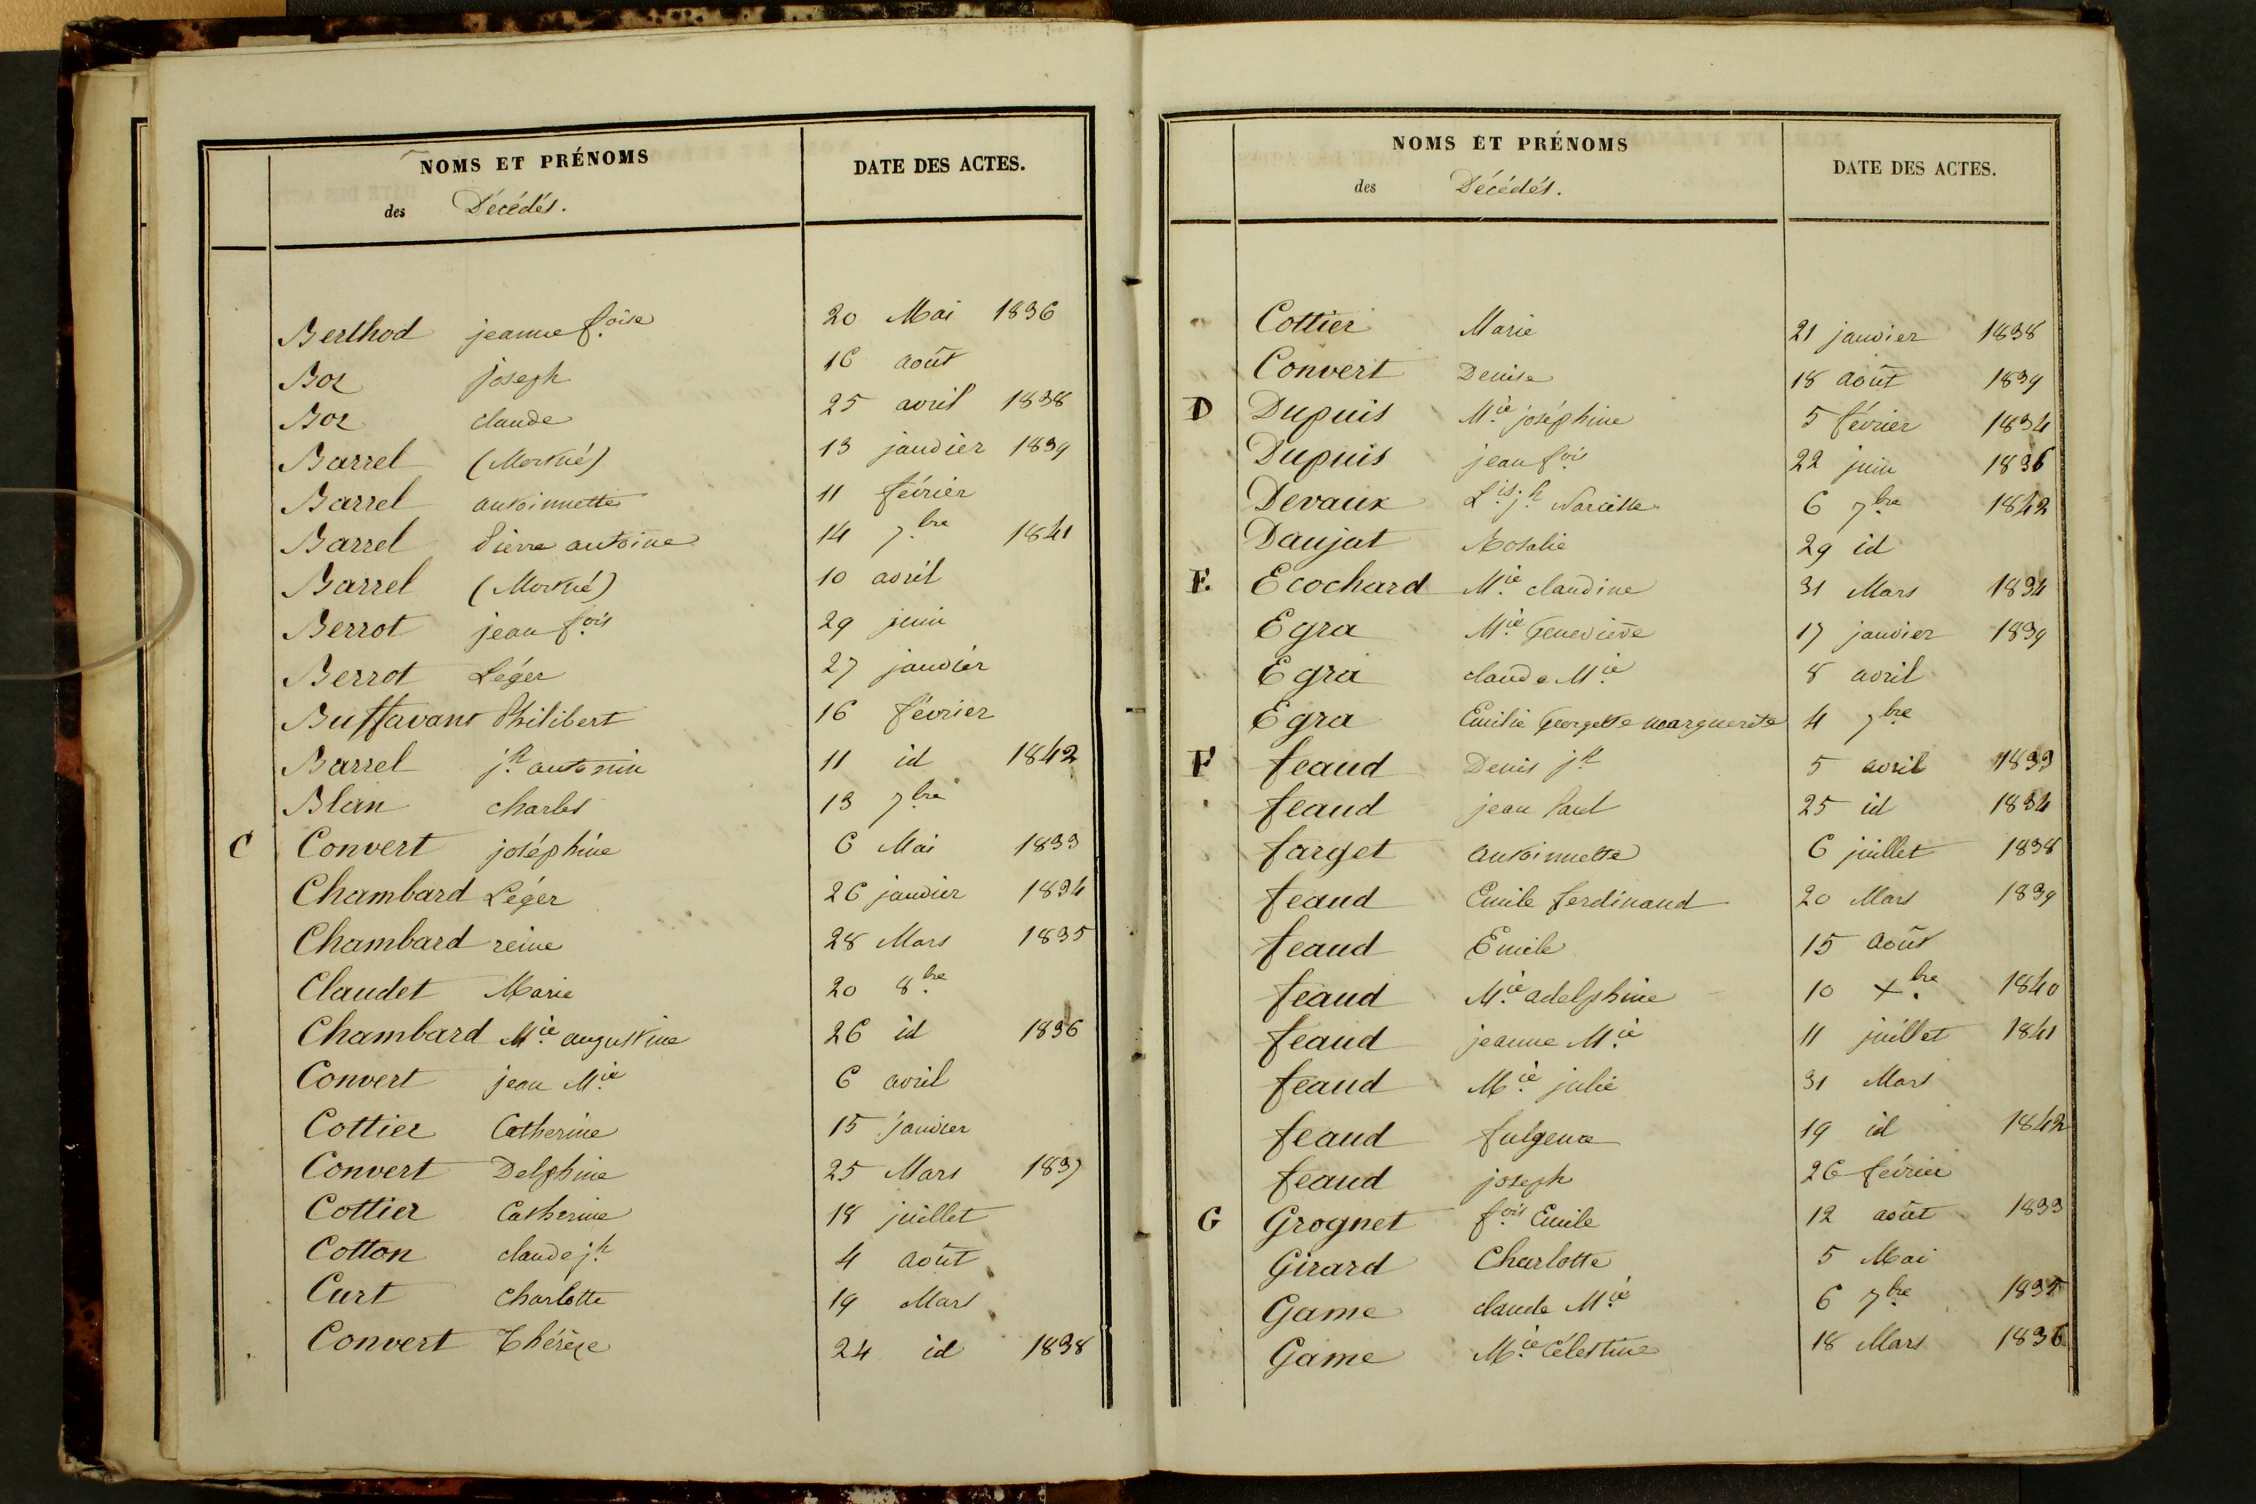 NOMS ET PRÉNOMS
DATE DES ACTES.
des Décédés.
Berthod jeanne f.oise 20 Mai 1836
Boz joseph 16 août
Boz claude 25 avril 1838
Barrel (Mort né) 13 janvier 1839
Barrel antoinette 11 février
Barrel Pierre antoine 14 7.bre 1841
Barrel (Mort né) 10 avril
Berrot jean f.ois 29 juin
Berrot Léger 27 janvier
Buffavant Philibert 16 février
Barrel j.h antonin 11 id 1842
Blan charles 13 7.bre
C Convert joséphine 6 Mai 1833
Chambard Léger 26 janvier 1834
Chambard reine 28 Mars 1835
Claudet Marie 20 8.bre
Chambard M.ie augustine 26 id 1836
Convert jean M.ie 6 avril
Cottier Catherine 15 janvier
Convert Delphine 25 Mars 1837
Cottier Catherine 18 juillet
Cotton claude j.h 4 août
Curt Charlotte 19 Mars
Convert Thérèze 24 id 1838
NOMS ET PRÉNOMS
DATE DES ACTES.
des Décédés.
Cottier Marie 21 janvier 1838
Convert Denise 18 août 1839
D Dupuis M.ie joséphine 5 février 1834
Dupuis jean f.ois 22 juin 1836
Devaux L.is j.h Narcisse 6 7.bre 1842
Daujat Rosalie 29 id
E Ecochard M.ie claudine 31 Mars 1834
Egra M.ie Geneviève 17 janvier 1839
Egra claude M.ie 8 avril
Egra Emilie Georgette marguerite 4 7.bre
F feaud Denis j.h 5 avril 1833
feaud jean Paul 25 id 1834
farget antoinette 6 juillet 1838
feaud Emile ferdinand 20 Mars 1839
feaud Emile 15 août
feaud M.ie adelphine 10 X.bre 1840
feaud jeanne M.ie 11 juillet 1841
feaud M.ie julie 31 Mars
feaud fulgence 19 id 1842
feaud joseph 26 février
G Grognet f.ois Emile 12 août 1833
Girard Charlotte 5 Mai
Game claude M.ie 6 7.bre 1835
Game M.ie Célestine 18 Mars 1836